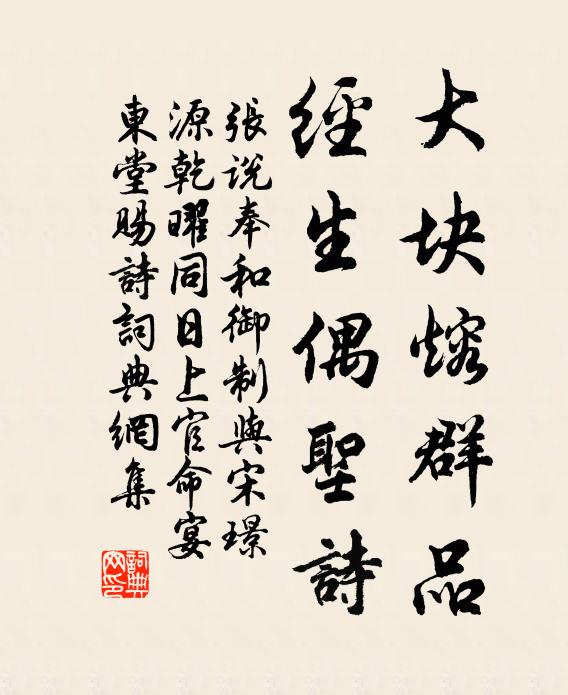 大块熔群品
經生偶聖詩
張说奉和御制與宋璟
源乾曜同日上官命宴
東堂賜詩詞典網集
詞典
网印